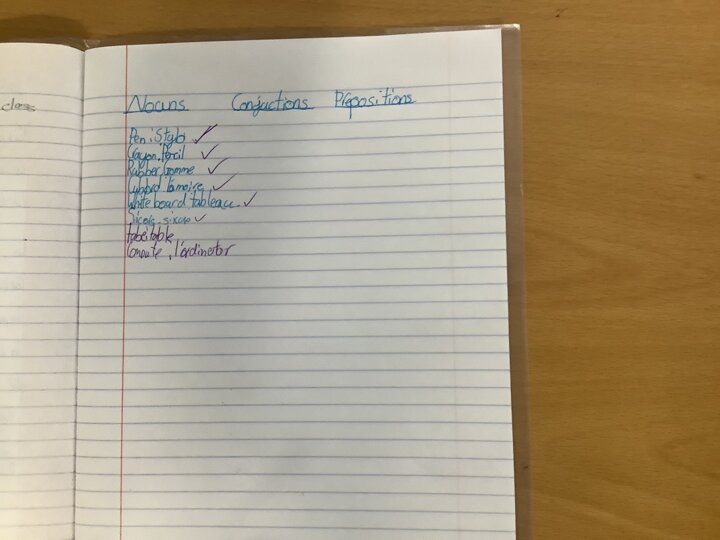 class
Nouns Conjuctions Prepositions
Pen: Stylo
Crayon, Pencil
Rubber, Gomme
Cubbord l'amoire
White board tableau
table: table
Compute, l'ordinator